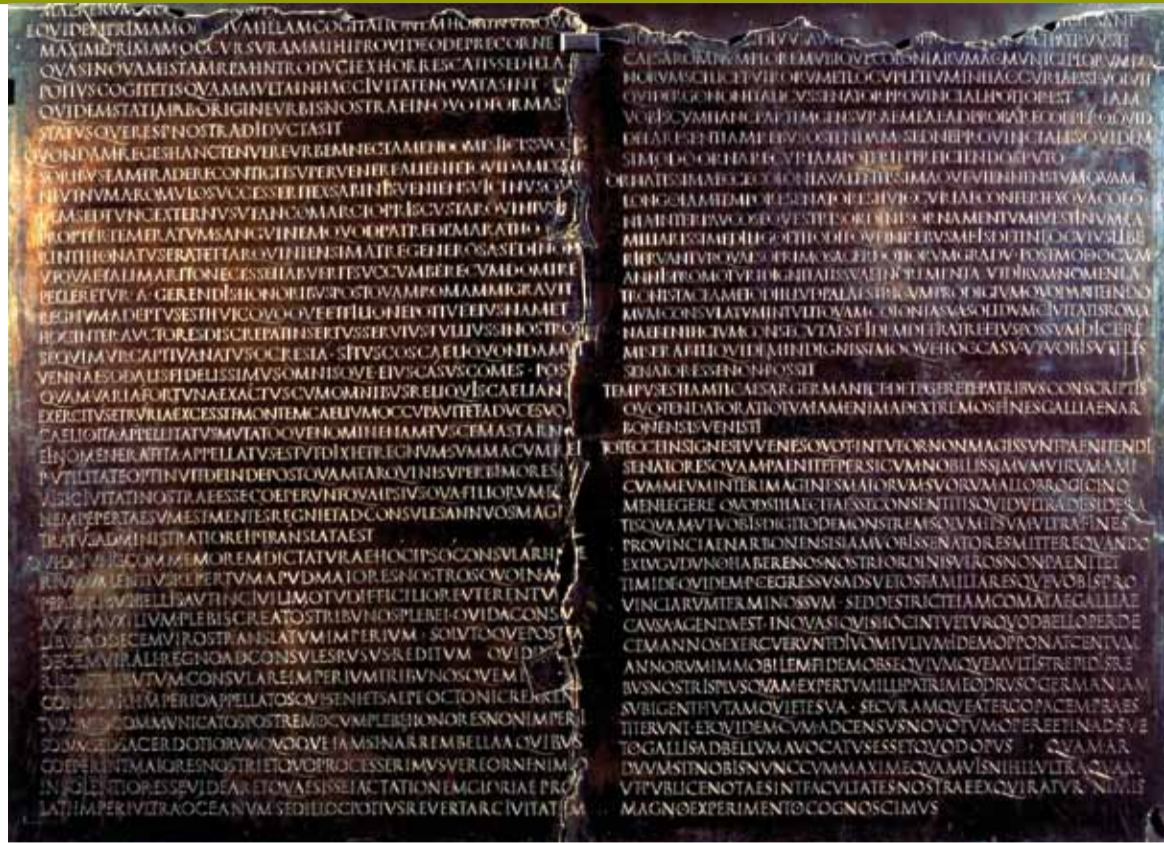 EQVIDEM PRIMAM OMNIVM ILLAM COGITATIONEM HOMINVM QVAM
MAXIME PRIMAM OCCVRSVRAM MIHI PROVIDEO DEPRECOR NE
QVASI NOVAM ISTAM REM INTRODVCI EXHORRESCATIS SED ILLA
POTIVS COGITETIS QVAM MVLTA IN HAC CIVITATE NOVATA SINT
QVIDEM STATIM AB ORIGINE VRBIS NOSTRAE IN QVOD FORMAS
STATVSQVE RES P NOSTRA DIDVCTA SIT
QVONDAM REGES HANC TENVERE VRBEM NEC TAMEN DOMESTICIS SVCCES
SORIBVS EAM TRADERE CONTIGIT SVPERVENERE ALIENI ET QVIDAM EXTER
NI VT NVMA ROMVLO SVCCESSERIT EX SABINIS VENIENS VICINVS QV
DEM SED TVNC EXTERNVS VT ANCO MARCIO PRISCVS TARQVINIVS
PROPTER TEMERATVM SANGVINEM QVOD PATRE DEMARATHO
RINTHIO NATVS ERAT ET TARQVINIENSI MATRE GENEROSA SED INOPI
VT QVAE TALI MARITO NECESSE HABVERIT SVCCVMBERE CVM DOMI RE
PELLERETVR A GERENDIS HONORIBVS POSTQVAM ROMAM MIGRAVIT
REGNVM ADEPTVS EST HVIC QVOQVE ET FILIO NEPOTIVE EIVS NAM ET
HOC INTER AVCTORES DISCREPAT INSERTVS SERVIVS TVLLIVS SI NOSTROS
SEQVIMVR CAPTIVA NATVS OCRESIA · SI TVSCOS CAELI QVONDAM
VENNAE SODALIS FIDELISSIMVS OMNISQVE EIVS CASVS COMES POS
QVAM VARIA FORTVNA EXACTVS CVM OMNIBVS RELIQVIS CAELIAN
EXERCITVS ETRVRIA EXCESSIT MONTEM CAELIVM OCCVPAVIT ET A DVCE SVO
CAELIO ITA APPELLITATVS MVTATOQVE NOMINE NAM TVSCE MASTARN
EI NOMEN ERAT ITA APPELLATVS EST VT DIXI ET REGNVM SVMMA CVM REI
P VTILITATE OPTINVIT DEINDE POSTQVAM TARQVINI SVPERBI MORES I
VISI CIVITATI NOSTRAE ESSE COEPERVNT QVA IPSIVS QVA FILIORVM EI
NEMPE PERTAESVM EST MENTES REGNI ET AD CONSVLES ANNVOS MAGIS
TRATVS ADMINISTRATIO REI P TRANSLATA EST
QVID NVNC COMMEMOREM DICTATVRAE HOC IPSO CONSVLARI IMPE
RIVM VALENTIVS REPERTVM APVD MAIORES NOSTROS QVO IN AS
PERIORIBVS BELLIS AVT IN CIVILI MOTV DIFFICILIORE VTERENTVR
AVT IN AVXILIVM PLEBIS CREATOS TRIBVNOS PLEBEI QVID A CONSV
LIBVS AD DECEMVIROS TRANSLATVM IMPERIVM · SOLVTOQVE POSTEA
DECEMVIRALI REGNO AD CONSVLES RVSVS REDITVM QVID IN
RIS DISTRIBVTVM CONSVLARE IMPERIVM TRIBVNOSQVE MI
CONSVLARI IMPERIO APPELLATOS QVI SENI ET SAEPE OCTONI CREAREN
TVR QVID COMMVNICATOS POSTREMO CVM PLEBE HONORES NON IMPERI
SOLVM SED SACERDOTIORVM QVOQVE IAM SI NARREM BELLA A QVIBVS
COEPERINT MAIORES NOSTRI ET QVO PROCESSERIMVS VEREOR NE NIMIO
INSOLENTIOR ESSE VIDEAR ET QVAESISSE IACTATIONEM GLORIAE PRO
LATI IMPERI VLTRA OCEANVM SED ILLOC POTIVS REVERTAR CIVITATEM
CAESAR OMNEM FLOREM VBIQVE COLONIARVM AC MVNICIPIORVM BO
NORVM SCILICET VIRORVM ET LOCVPLETIVM IN HAC CVRIA ESSE VOLVIT
QVID ERGO NON ITALICVS SENATOR PROVINCIALI POTIOR EST IAM
VOBIS CVM HANC PARTEM CENSVRAE MEAE ADPROBARE COEPERO QVID
DE EA RE SENTIAM REBVS OSTENDAM SED NE PROVINCIALES QVIDEM
SI MODO ORNARE CVRIAM POTERINT REICIENDOS PVTO
ORNATISSIMA ECCE COLONIA VALENTISSIMAQVE VIENNENSIVM QVAM
LONGO IAM TEMPORE SENATORES HVIC CVRIAE CONFERT EX QVA COLO
NIA INTER PAVCOS EQVESTRIS ORDINIS ORNAMENTVM L VESTINVM FA
MILIARISSIME DILIGO ET HODIEQVE IN REBVS MEIS DETINEO CVIVS LIBE
RI FRVANTVR QVAESO PRIMO SACERDOTIORVM GRADV POST MODO CVM
ANNIS PROMOTVRI DIGNITATIS SVAE INCREMENTA VT DIRVM NOMEN LA
TRONIS TACEAM ET ODI ILLVD PALAESTRICVM PRODIGIVM QVOD ANTE IN DO
MVM CONSVLATVM INTVLIT QVAM COLONIA SVA SOLIDVM CIVITATIS ROMA
NAE BENIFICIVM CONSECVTA EST IDEM DE FRATRE EIVS POSSVM DICERE
MISERABILI QVIDEM INDIGNISSIMOQVE HOC CASV VT VOBIS VTILIS
SENATOR ESSE NON POSSIT
TEMPVS EST IAM TI CAESAR GERMANICE DETEGERE TE PATRIBVS CONSCRIPTIS
QVO TENDAT ORATIO TVA IAM ENIM AD EXTREMOS FINES GALLIAE NAR
BONENSIS VENISTI
TOT ECCE INSIGNES IVVENES QVOT INTVEOR NON MAGIS SVNT PAENITENDI
SENATORES QVAM PAENITET PERSICVM NOBILISSIMVM VIRVM AMI
CVM MEVM INTER IMAGINES MAIORVM SVORVM ALLOBROGICI NO
MEN LEGERE QVOD SI HAEC ITA ESSE CONSENTITIS QVID VLTRA DESIDERA
TIS QVAM VT VOBIS DIGITO DEMONSTREM SOLVM IPSVM VLTRA FINES
PROVINCIAE NARBONENSIS IAM VOBIS SENATORES MITTERE QVANDO
EX LVGVDVNO HABERE NOS NOSTRI ORDINIS VIROS NON PAENITET
TIMIDE QVIDEM P C EGRESSVS ADSVETOS FAMILIARESQVE VOBIS PRO
VINCIARVM TERMINOS SVM · SED DESTRICTE IAM COMATAE GALLIAE
CAVSA AGENDA EST IN QVA SI QVIS HOC INTVETVR QVOD BELLO PER DE
CEM ANNOS EXERCVERVNT DIVOM IVLIVM IDEM OPPONAT CENTVM
ANNORVM IMMOBILEM FIDEM OBSEQVIVMQVE MVLTIS TREPIDIS RE
BVS NOSTRIS PLVS QVAM EXPERTVM ILLI PATRI MEO DRVSO GERMANIAM
SVBIGENTI TVTAM QVIETE SVA · SECVRAMQVE A TERGO PACEM PRAES
TITERVNT · ET QVIDEM CVM AD CENSVS NOVO TVM OPERE ET INADSVE
TO GALLIS AD BELLVM AVOCATVS ESSET QVOD OPVS QVAM AR
DVVM SIT NOBIS NVNC CVM MAXIME QVAMVIS NIHIL VLTRA QVAM
VT PVBLICE NOTAE SINT FACVLTATES NOSTRAE EXQVIRATVR NIMIS
MAGNO EXPERIMENTO COGNOSCIMVS